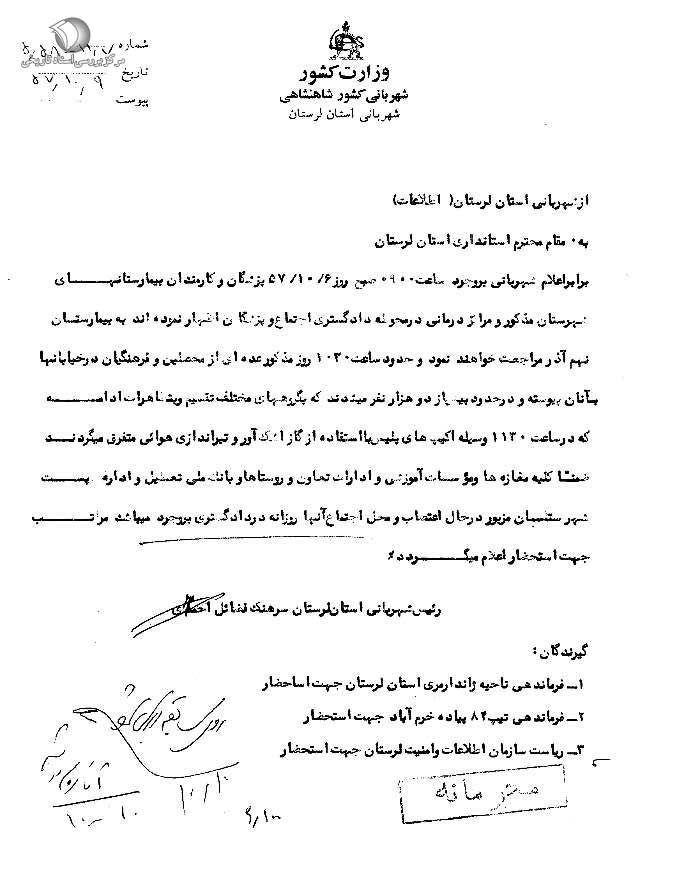 شماره
تاریخ ۵۷/۱۰/۹
پیوست
مرکز بررسی اسناد تاریخی
وزارت کشور
شهربانی کشور شاهنشاهی
شهربانی استان لرستان
از: شهربانی استان لرستان( اطلاعات)
به: مقام محترم استانداری استان لرستان
برابر اعلام شهربانی بروجرد ساعت ۰۹۰۰ صبح روز ۵۷/۱۰/۶ پزشگان و کارمندان بیمارستانهای
شهرستان مذکور و مراکز درمانی در محوطه دادگستری اجتماع و پزشگان اظهار نموده اند به بیمارستان
نهم آذر مراجعت خواهند نمود و حدود ساعت ۱۰۳۰ روز مذکور عده ای از محصلین و فرهنگیان در خیابانها
بآنان پیوسته و در حدود بیش از دو هزار نفر میشدند که بگروههای مختلف تقسیم و بتظاهرات ادامه
که در ساعت ۱۱۳۰ وسیله اکیپ های پلیس با استفاده از گاز اشک آور و تیراندازی هوائی متفرق میگردند
ضمنا کلیه مغازه ها و مؤسسات آموزشی و ادارات تعاون و روستاها و بانک ملی تعطیل و اداره پست
شهرستان مزبور در حال اعتصاب و محل اجتماع آنها روزانه در دادگستری بروجرد میباشد مراتب
جهت استحضار اعلام میگردد٪
رئیس شهربانی استان لرستان سرهنگ فضائل احمدی
گیرندگان:
۱ـ فرماندهی ناحیه ژاندارمری استان لرستان جهت اساحضار
۲ـ فرماندهی تیپ ۸۴ پیاده خرم آباد جهت استحضار
۳ـ ریاست سازمان اطلاعات و امنیت لرستان جهت استحضار
محرمانه
۱۰/۱۰